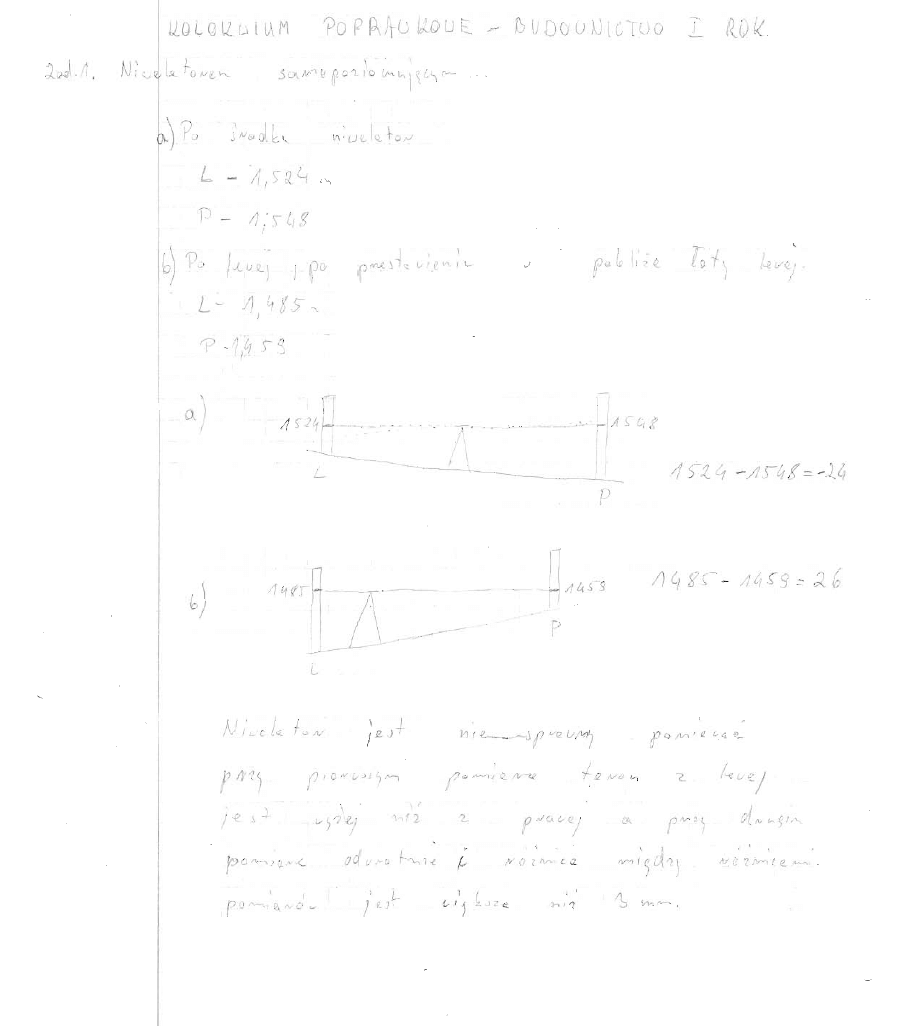 KOLOKWIUM POPRAWKOWE - BUDOWNICTWO I ROK.
Zad.1. Niwelatorem samopoziomującym ...
a) Po środku niwelator
L - 1,524 m
P - 1,548
b) Po lewej, po przestawieniu w pobliże łaty lewej.
L - 1,485 m
P - 1,459
a)
1524
1548
L
P
1524 - 1548 = -24
b)
1485
1459
L
P
1485 - 1459 = 26
Niwelator jest nie sprawny ponieważ
przy pierwszym pomiarze teren z lewej
jest wyżej niż z prawej a przy drugim
pomiarze odwrotnie i różnica między różnicami
pomiarów jest większe niż 3 mm.